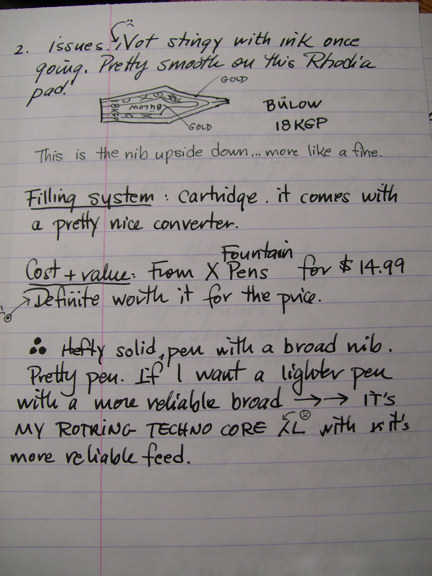 2. issues. Not stingy with ink once
going. Pretty smooth on this Rhodia
pad.
GOLD
BÜLOW
18KGP
BÜLOW
18KGP
GOLD
This is the nib upside down... more like a fine.
Filling system: Cartridge. it comes with
a pretty nice converter.
Fountain
Cost + value: From X Pens for $14.99
Definite worth it for the price.
∴ Hefty solid, pen with a broad nib.
Pretty pen. If I want a lighter pen
with a more reliable broad →→ IT'S
MY ROTRING TECHNO CORE XL with it's
more reliable feed.